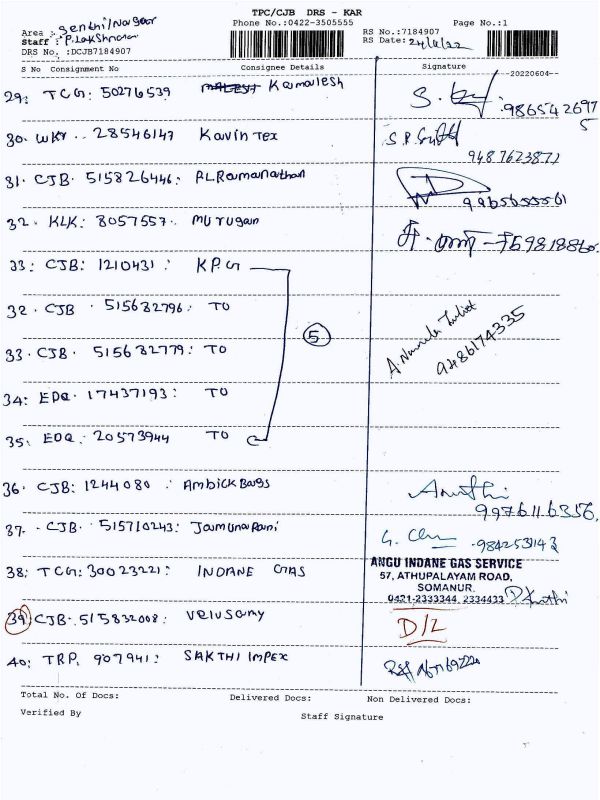 TPC/CJB DRS - KAR
Phone No.:0422-3505555
Page No.:1
Area : Senthil Nagar
Staff : P.Lakshmanan
RS No.:7184907
RS Date: 24/6/22
DRS No. :DCJB7184907
S No Consignment No Consignee Details Signature
20220604--
29: TCG: 50276539 Kamalesh S.
986542697
5
30. WKY.. 28546147 Kavin Tex
9487623872
31. CJB. 515826446: P.L.Ramanathan
32. KLK: 8057557. Murugan
33: CJB: 1210431: K.P.G
32. CJB . 515632796. TO
33. CJB. 515632779: TO
5
9486174335
34: EDQ. 17437193: TO
35. EDQ. 20573944 TO
36. CJB: 1244080 . Ambick Bags
9976116356.
37. .CJB. 515710243: Jamuna Rani
38: TCG: 30023221: INDANE GAS
ANGU INDANE GAS SERVICE
57, ATHUPALAYAM ROAD,
SOMANUR.
0421-2333344, 2334433
39 CJB. 515832008: Velusamy D/L
40: TRP. 907941: SAKTHI IMPEX
Total No. Of Docs: Delivered Docs: Non Delivered Docs:
Verified By Staff Signature